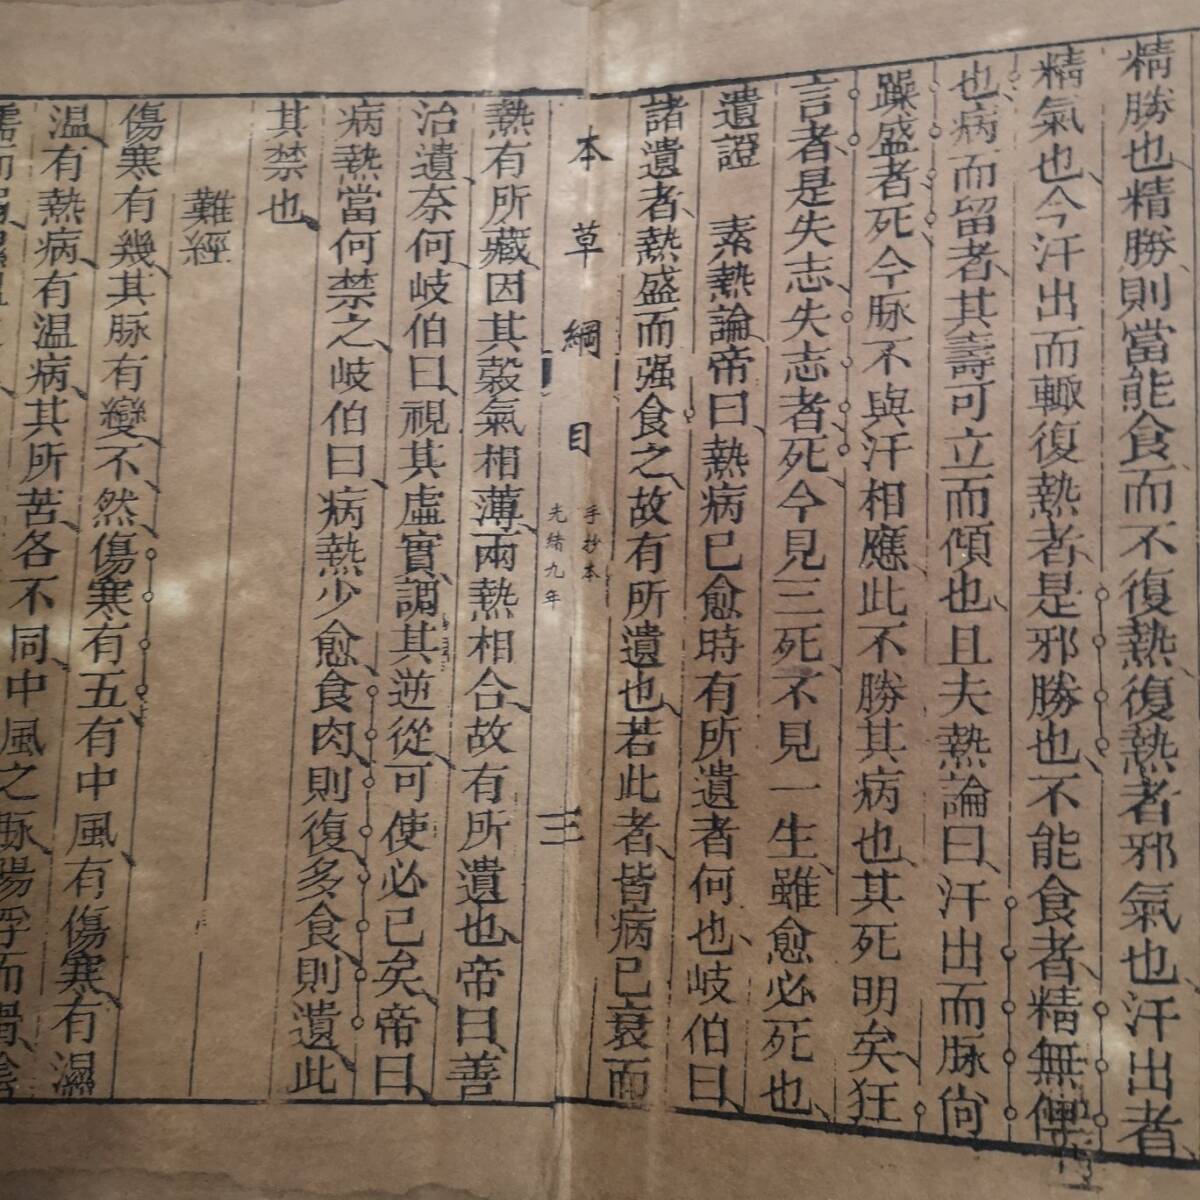 精勝也精勝則當能食而不復熱復熱者邪氣也汗出者
精氣也今汗出而輙復熱者是邪勝也不能食者精無俾
也病而留者其壽可立而傾也且夫熱論曰汗出而脉尙
躁盛者死今脉不與汗相應此不勝其病也其死明矣狂
言者是失志失志者死今見三死不見一生雖愈必死也
遺證 素熱論帝曰熱病已愈時有所遺者何也岐伯曰
諸遺者熱盛而强食之故有所遺也若此者皆病已衰而
本草綱目 三
手抄本
光緒九年
熱有所藏因其穀氣相薄兩熱相合故有所遺也帝曰善
治遺奈何岐伯曰視其虛實調其逆從可使必已矣帝曰
病熱當何禁之岐伯曰病熱少愈食肉則復多食則遺此
其禁也
難經
傷寒有幾其脈有變不然傷寒有五有中風有傷寒有濕
温有熱病有温病其所苦各不同中風之脉陽浮而滑陰
濡而弱